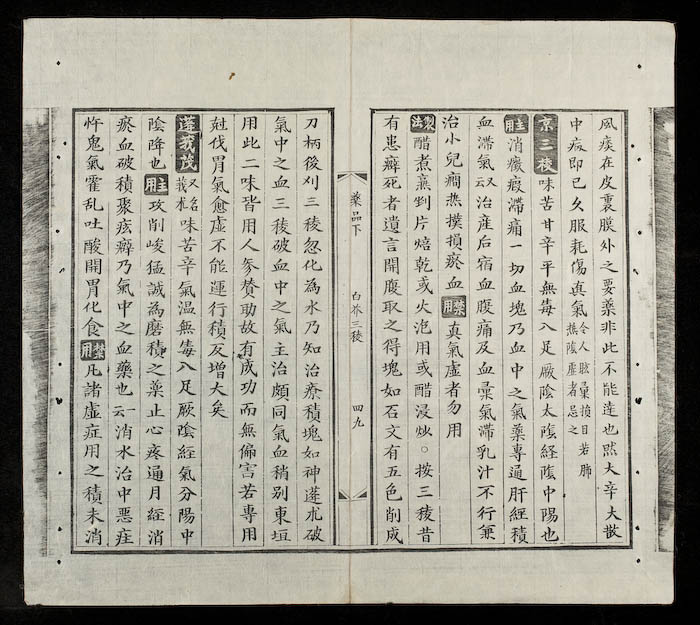 風痰在皮裏膜外之要藥非此不能達也然大辛大散
中病即已久服耗傷真氣令人眩暈損目若肺熱陰虛者忌之
京三稜味苦甘辛平無毒入足厥陰太陰経陰中陽也
主用消癥瘕滯痛一切血塊乃血中之氣藥專通肝經積
血滯氣又云治産后宿血腹痛及血暈氣滯乳汁不行兼
治小兒癇热撲損瘀血禁用真氣虛者勿用
製法醋煮熏剉片焙乾或火炮用或醋浸炒○按三稜昔
有患癖死者遺言開腹取之得塊如石文有五色削成
藥品下
白芥三稜
四九
刀柄後刈三稜忽化為水乃知治療積塊如神蓬朮破
氣中之血三稜破血中之氣主治頗同氣血稍别東垣
用此二味皆用人參賛助故有成功而無偏害若專用
尅伐胃氣愈虛不能運行積反增大矣
蓬莪茂又名莪朮味苦辛氣温無毒入足厥陰經氣分陽中
陰降也主用攻削峻猛誠為磨積之藥止心疼通月經消
瘀血破積聚痃癖乃氣中之血藥也一云消水治中惡疰
忤鬼氣霍乱吐酸開胃化食禁用凡諸虛症用之積未消